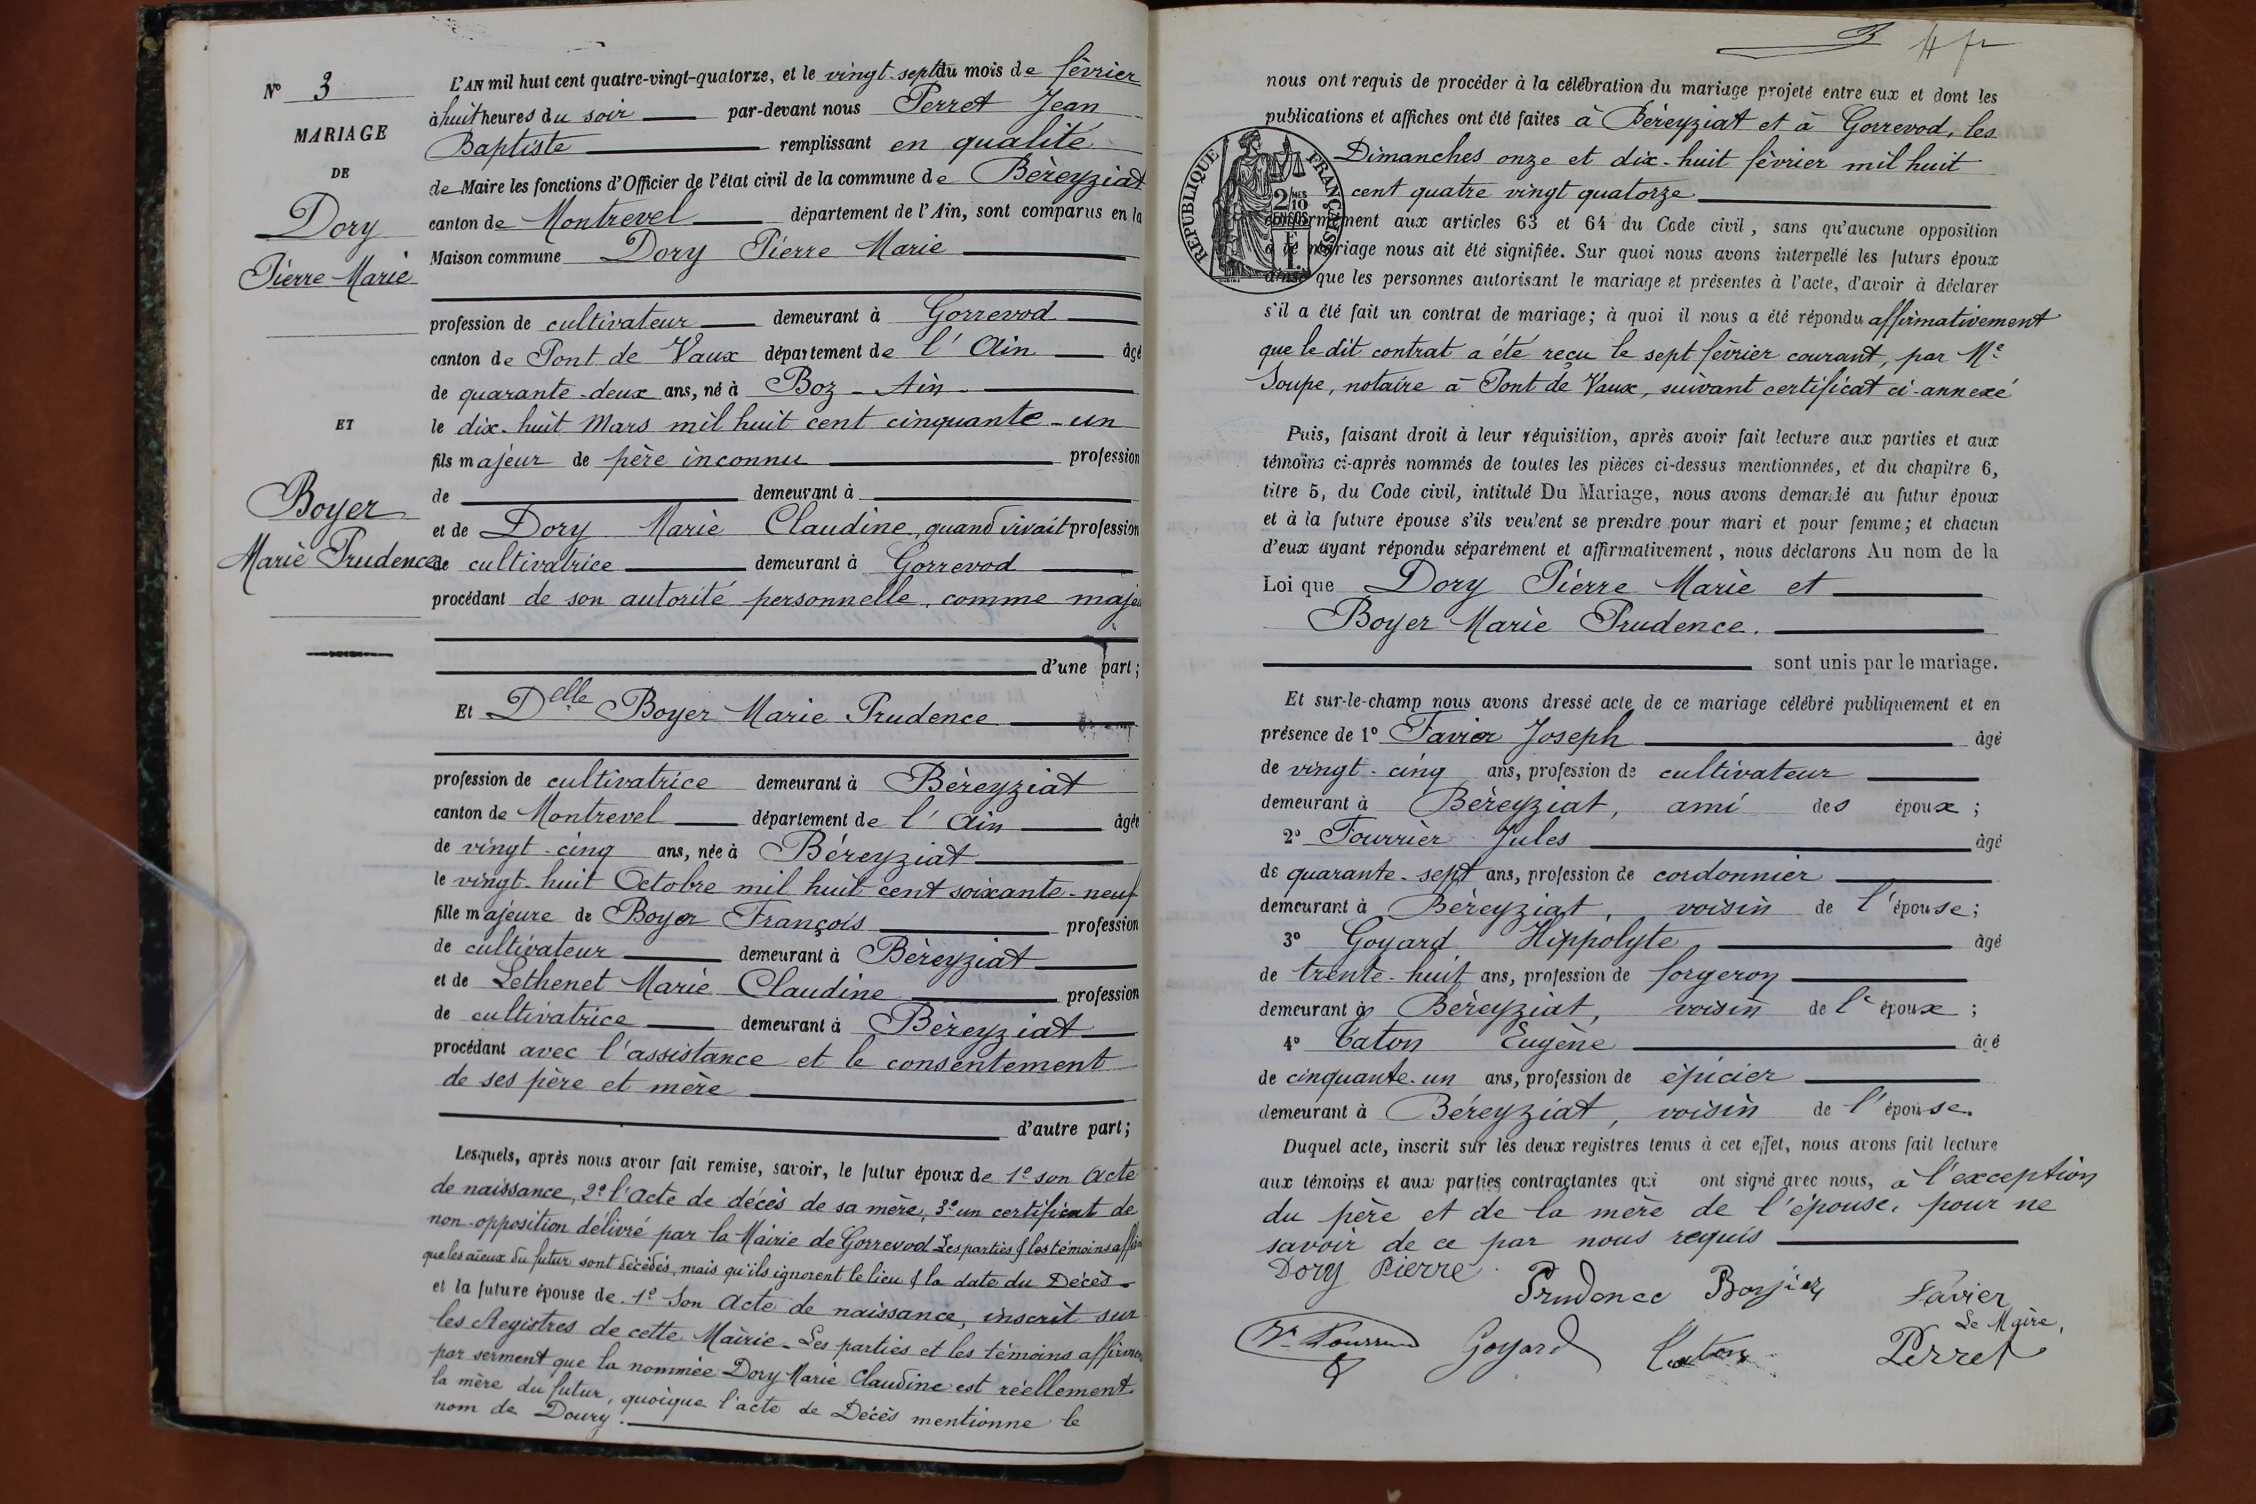 N° 3
MARIAGE
DE
Dory
Pierre Marie
ET
Boyer
Marie Prudence
L'AN mil huit cent quatre-vingt-quatorze, et le vingt-sept du mois de février
à huit heures du soir par-devant nous Perret Jean
Baptiste remplissant en qualité
de Maire les fonctions d'Officier de l'état civil de la commune de Béreyziat
canton de Montrevel département de l'Ain, sont comparus en la
Maison commune Dory Pierre Marie
profession de cultivateur demeurant à Gorrevod
canton de Pont de Vaux département de l'Ain âgé
de quarante-deux ans, né à Boz - Ain
le dix-huit Mars mil huit cent cinquante-un
fils majeur de père inconnu profession
de demeurant à
et de Dory Marie Claudine, quand vivait profession
de cultivatrice demeurant à Gorrevod
procédant de son autorité personnelle, comme majeur
d'une part;
Et Delle Boyer Marie Prudence
profession de cultivatrice demeurant à Béreyziat
canton de Montrevel département de l'Ain âgée
de vingt-cinq ans, née à Béreyziat
le vingt-huit Octobre mil huit cent soixante-neuf
fille majeure de Boyer François profession
de cultivateur demeurant à Béreyziat
et de Lethenet Marie Claudine profession
de cultivatrice demeurant à Béreyziat
procédant avec l'assistance et le consentement
de ses père et mère
d'autre part;
Lesquels, après nous avoir fait remise, savoir, le futur époux de 1° son Acte
de naissance, 2° l'acte de décès de sa mère, 3° un certificat de
non-opposition délivré par la Mairie de Gorrevod Les parties & les témoins
que les aïeux du futur sont décédés, mais qu'ils ignorent le lieu & la date du Décès
et la future épouse de 1° Son Acte de naissance, inscrit sur
les Registres de cette Mairie. Les parties et les témoins affirment
par serment que la nommée Dory Marie Claudine est réellement
la mère du futur, quoique l'acte de Décès mentionne le
nom de Doury.
3
nous ont requis de procéder à la célébration du mariage projeté entre eux et dont les
publications et affiches ont été faites à Béreyziat et à Gorrevod, les
Dimanches onze et dix-huit février mil huit
cent quatre vingt quatorze
RÉPUBLIQUE FRANÇAISE
2/10 EN SUS
conformément aux articles 63 et 64 du Code civil, sans qu'aucune opposition
à ce mariage nous ait été signifiée. Sur quoi nous avons interpellé les futurs époux
ainsi que les personnes autorisant le mariage et présentes à l'acte, d'avoir à déclarer
s'il a été fait un contrat de mariage; à quoi il nous a été répondu affirmativement
que le dit contrat a été reçu le sept février courant, par Me
Soupe, notaire à Pont de Vaux, suivant certificat ci-annexé
Puis, faisant droit à leur réquisition, après avoir fait lecture aux parties et aux
témoins ci-après nommés de toutes les pièces ci-dessus mentionnées, et du chapitre 6,
titre 5, du Code civil, intitulé Du Mariage, nous avons demandé au futur époux
et à la future épouse s'ils veulent se prendre pour mari et pour femme; et chacun
d'eux ayant répondu séparément et affirmativement, nous déclarons Au nom de la
Loi que Dory Pierre Marie et
Boyer Marie Prudence.
sont unis par le mariage.
Et sur-le-champ nous avons dressé acte de ce mariage célébré publiquement et en
présence de 1° Favier Joseph âgé
de vingt-cinq ans, profession de cultivateur
demeurant à Béreyziat, ami des époux;
2° Fourrier Jules âgé
de quarante-sept ans, profession de cordonnier
demeurant à Béreyziat, voisin de l'épouse;
3° Goyard Hippolyte âgé
de trente-huit ans, profession de forgeron
demeurant à Béreyziat, voisin de l'époux;
4° Caton Eugène âgé
de cinquante-un ans, profession de épicier
demeurant à Béreyziat, voisin de l'épouse.
Duquel acte, inscrit sur les deux registres tenus à cet effet, nous avons fait lecture
aux témoins et aux parties contractantes qui ont signé avec nous, à l'exception
du père et de la mère de l'épouse, pour ne
savoir de ce par nous requis
Dory Pierre Prudence Boyier Favier
Le Maire,
Goyard Caton Perret